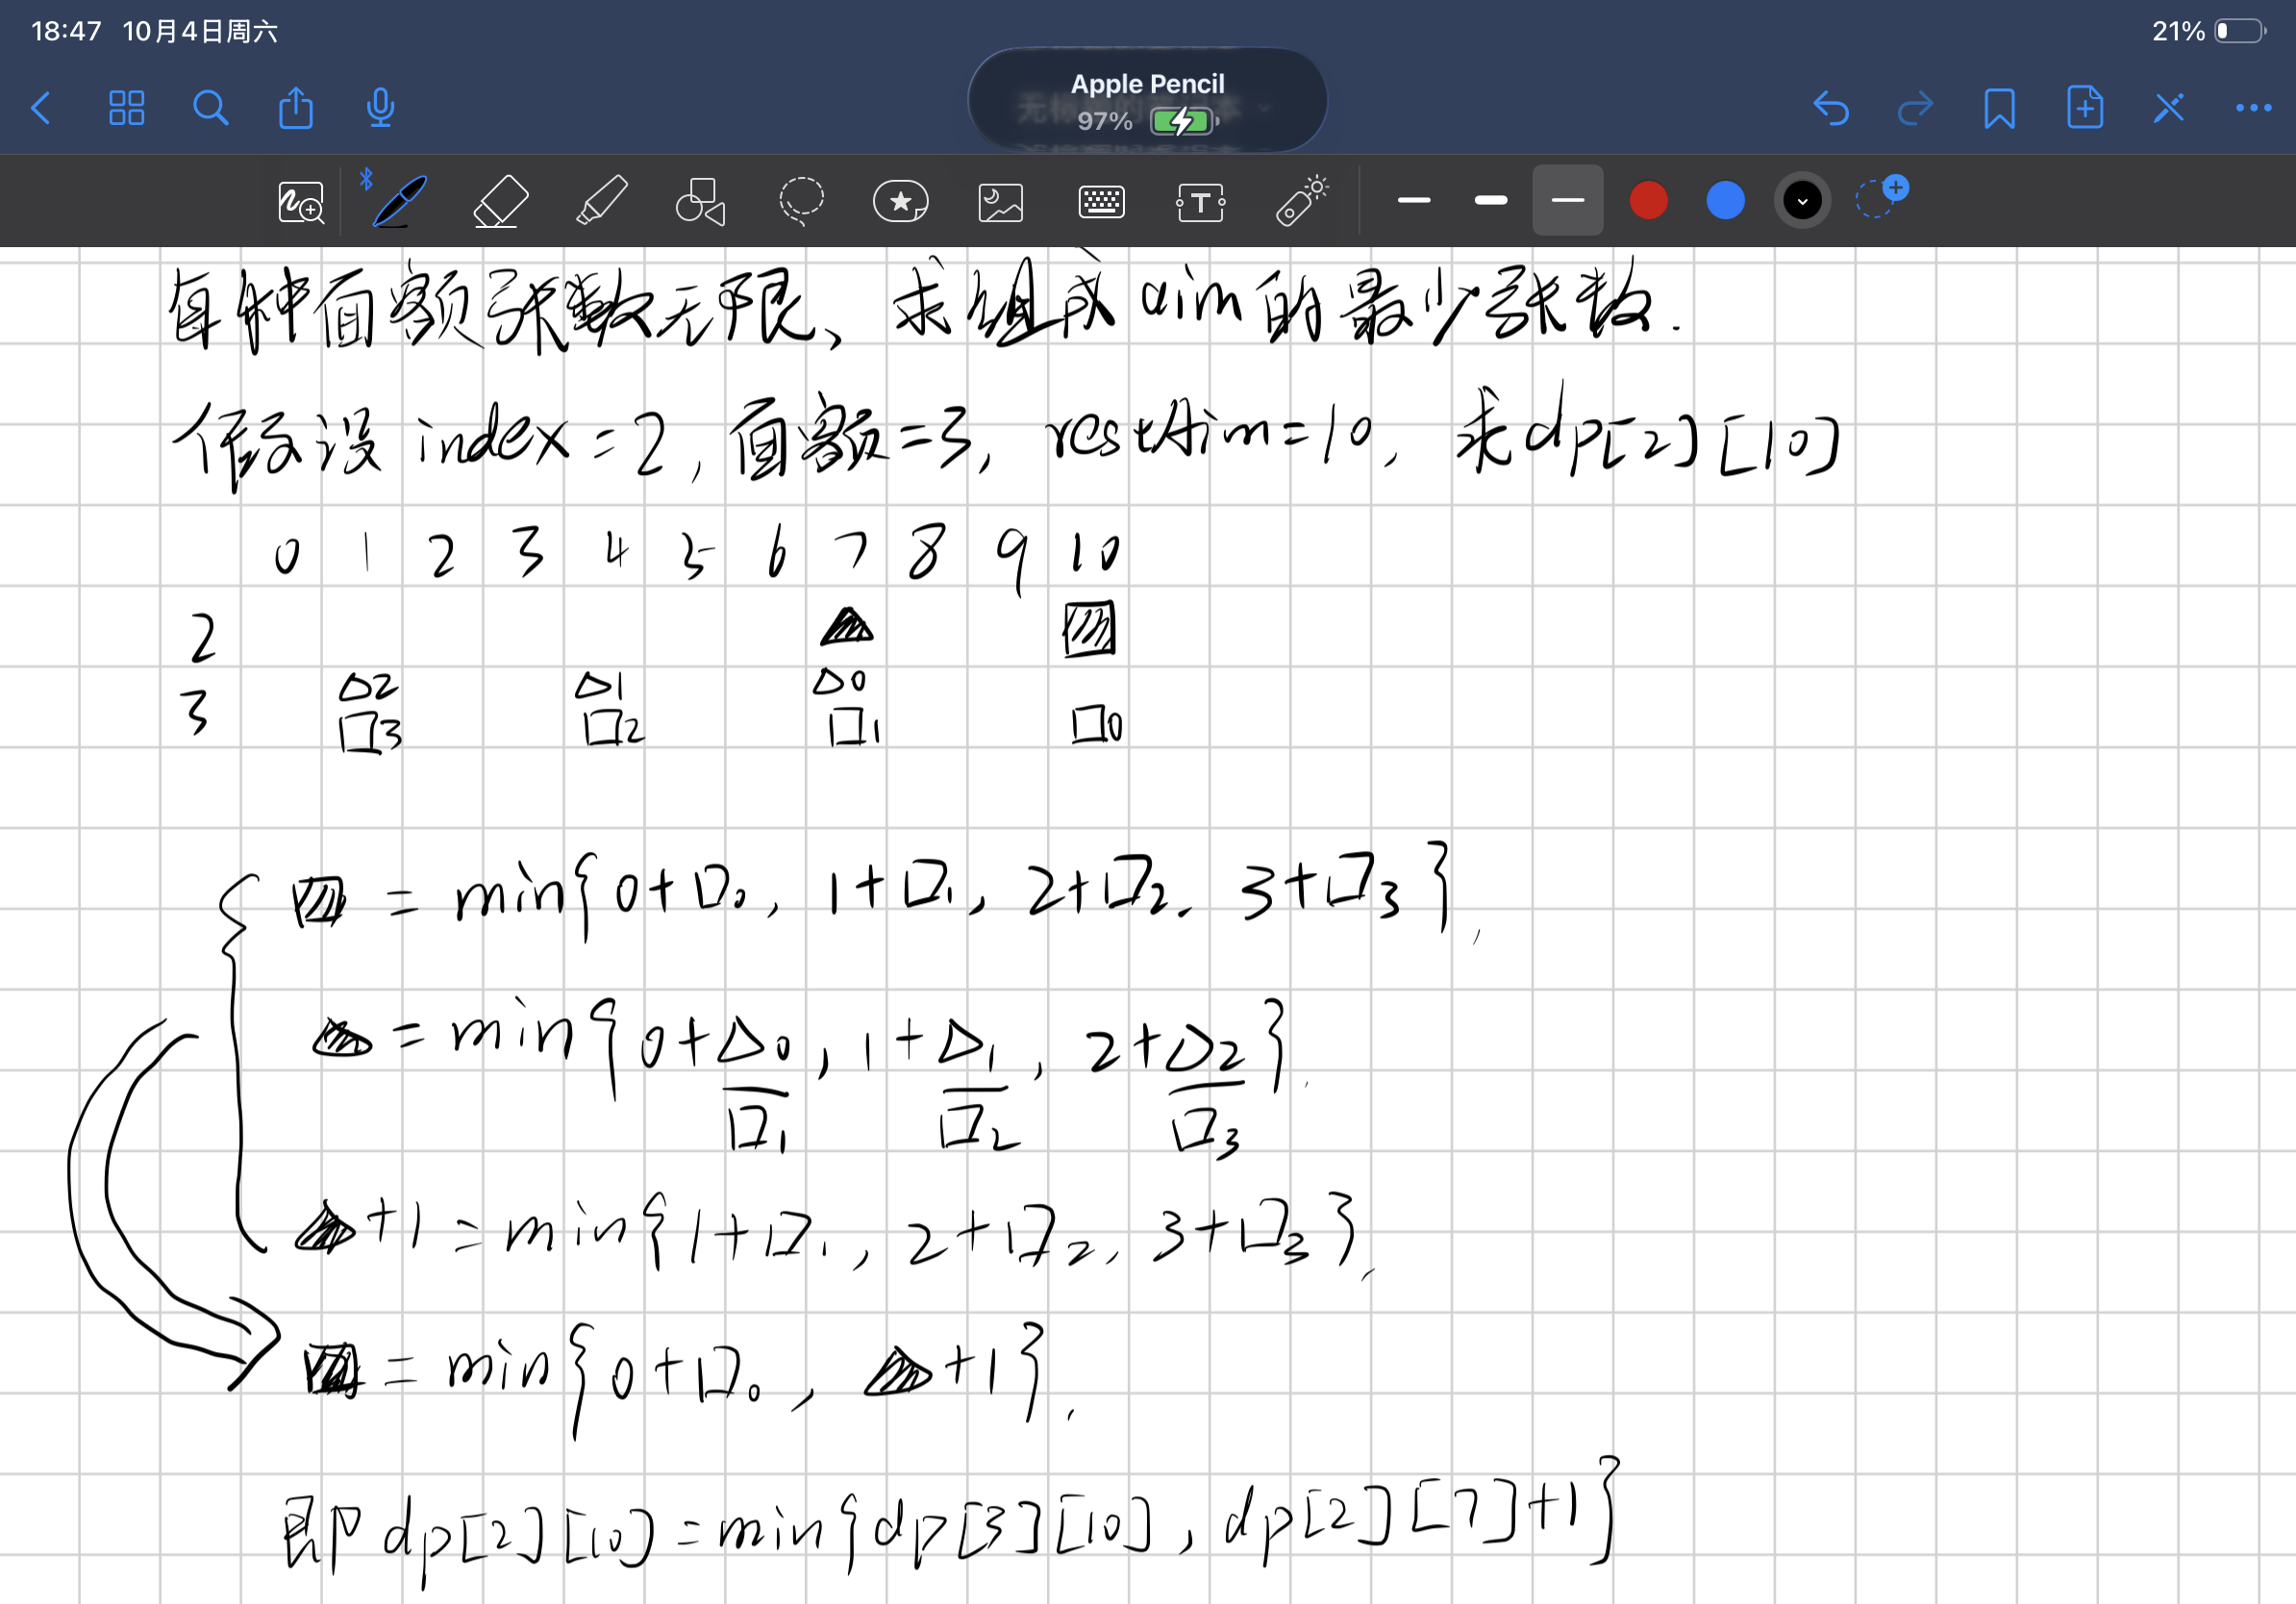 18:47 10月4日周六
21%
Apple Pencil
97%
每种面额张数无限、求组成aim的最少张数.
假设index=2,面额=3,restAim=10, 求dp[2][10]
0 1 2 3 4 5 6 7 8 9 10
2 ▲ ▨
△2 △1 △0
3 □3 □2 □1 □0
▨ = min{0+□0, 1+□1, 2+□2, 3+□3},
▲ = min{0+△0, 1+△1, 2+△2}.
□1 □2 □3
▲+1 = min{1+□1, 2+□2, 3+□3},
▨ = min{0+□0, ▲+1}.
即dp[2][10]=min{dp[3][10], dp[2][7]+1}